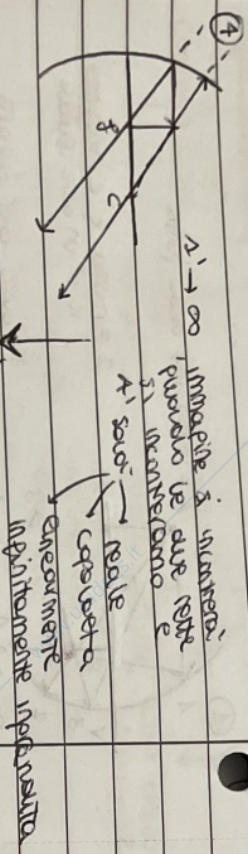 4
F
C
1' → ∞ immagine si incontrerà
quando le due rette
si incontreranno e
A' sarà → reale
capovolta
enormemente
infinitamente ingrandita